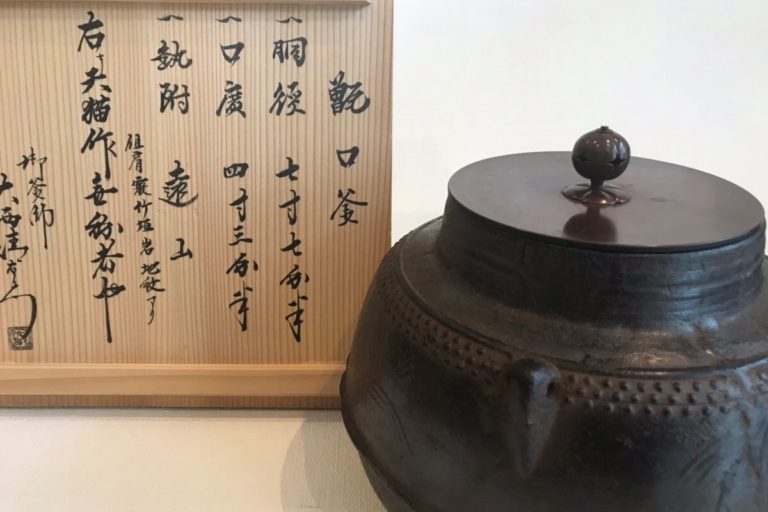 甑口釜
一胴径 七寸七分半
一口廣 四寸三分半
一執附 遠山
但肩霰竹垣岩地紋有
右ミ天猫作無紛者也
御釜師
大西清右衛門